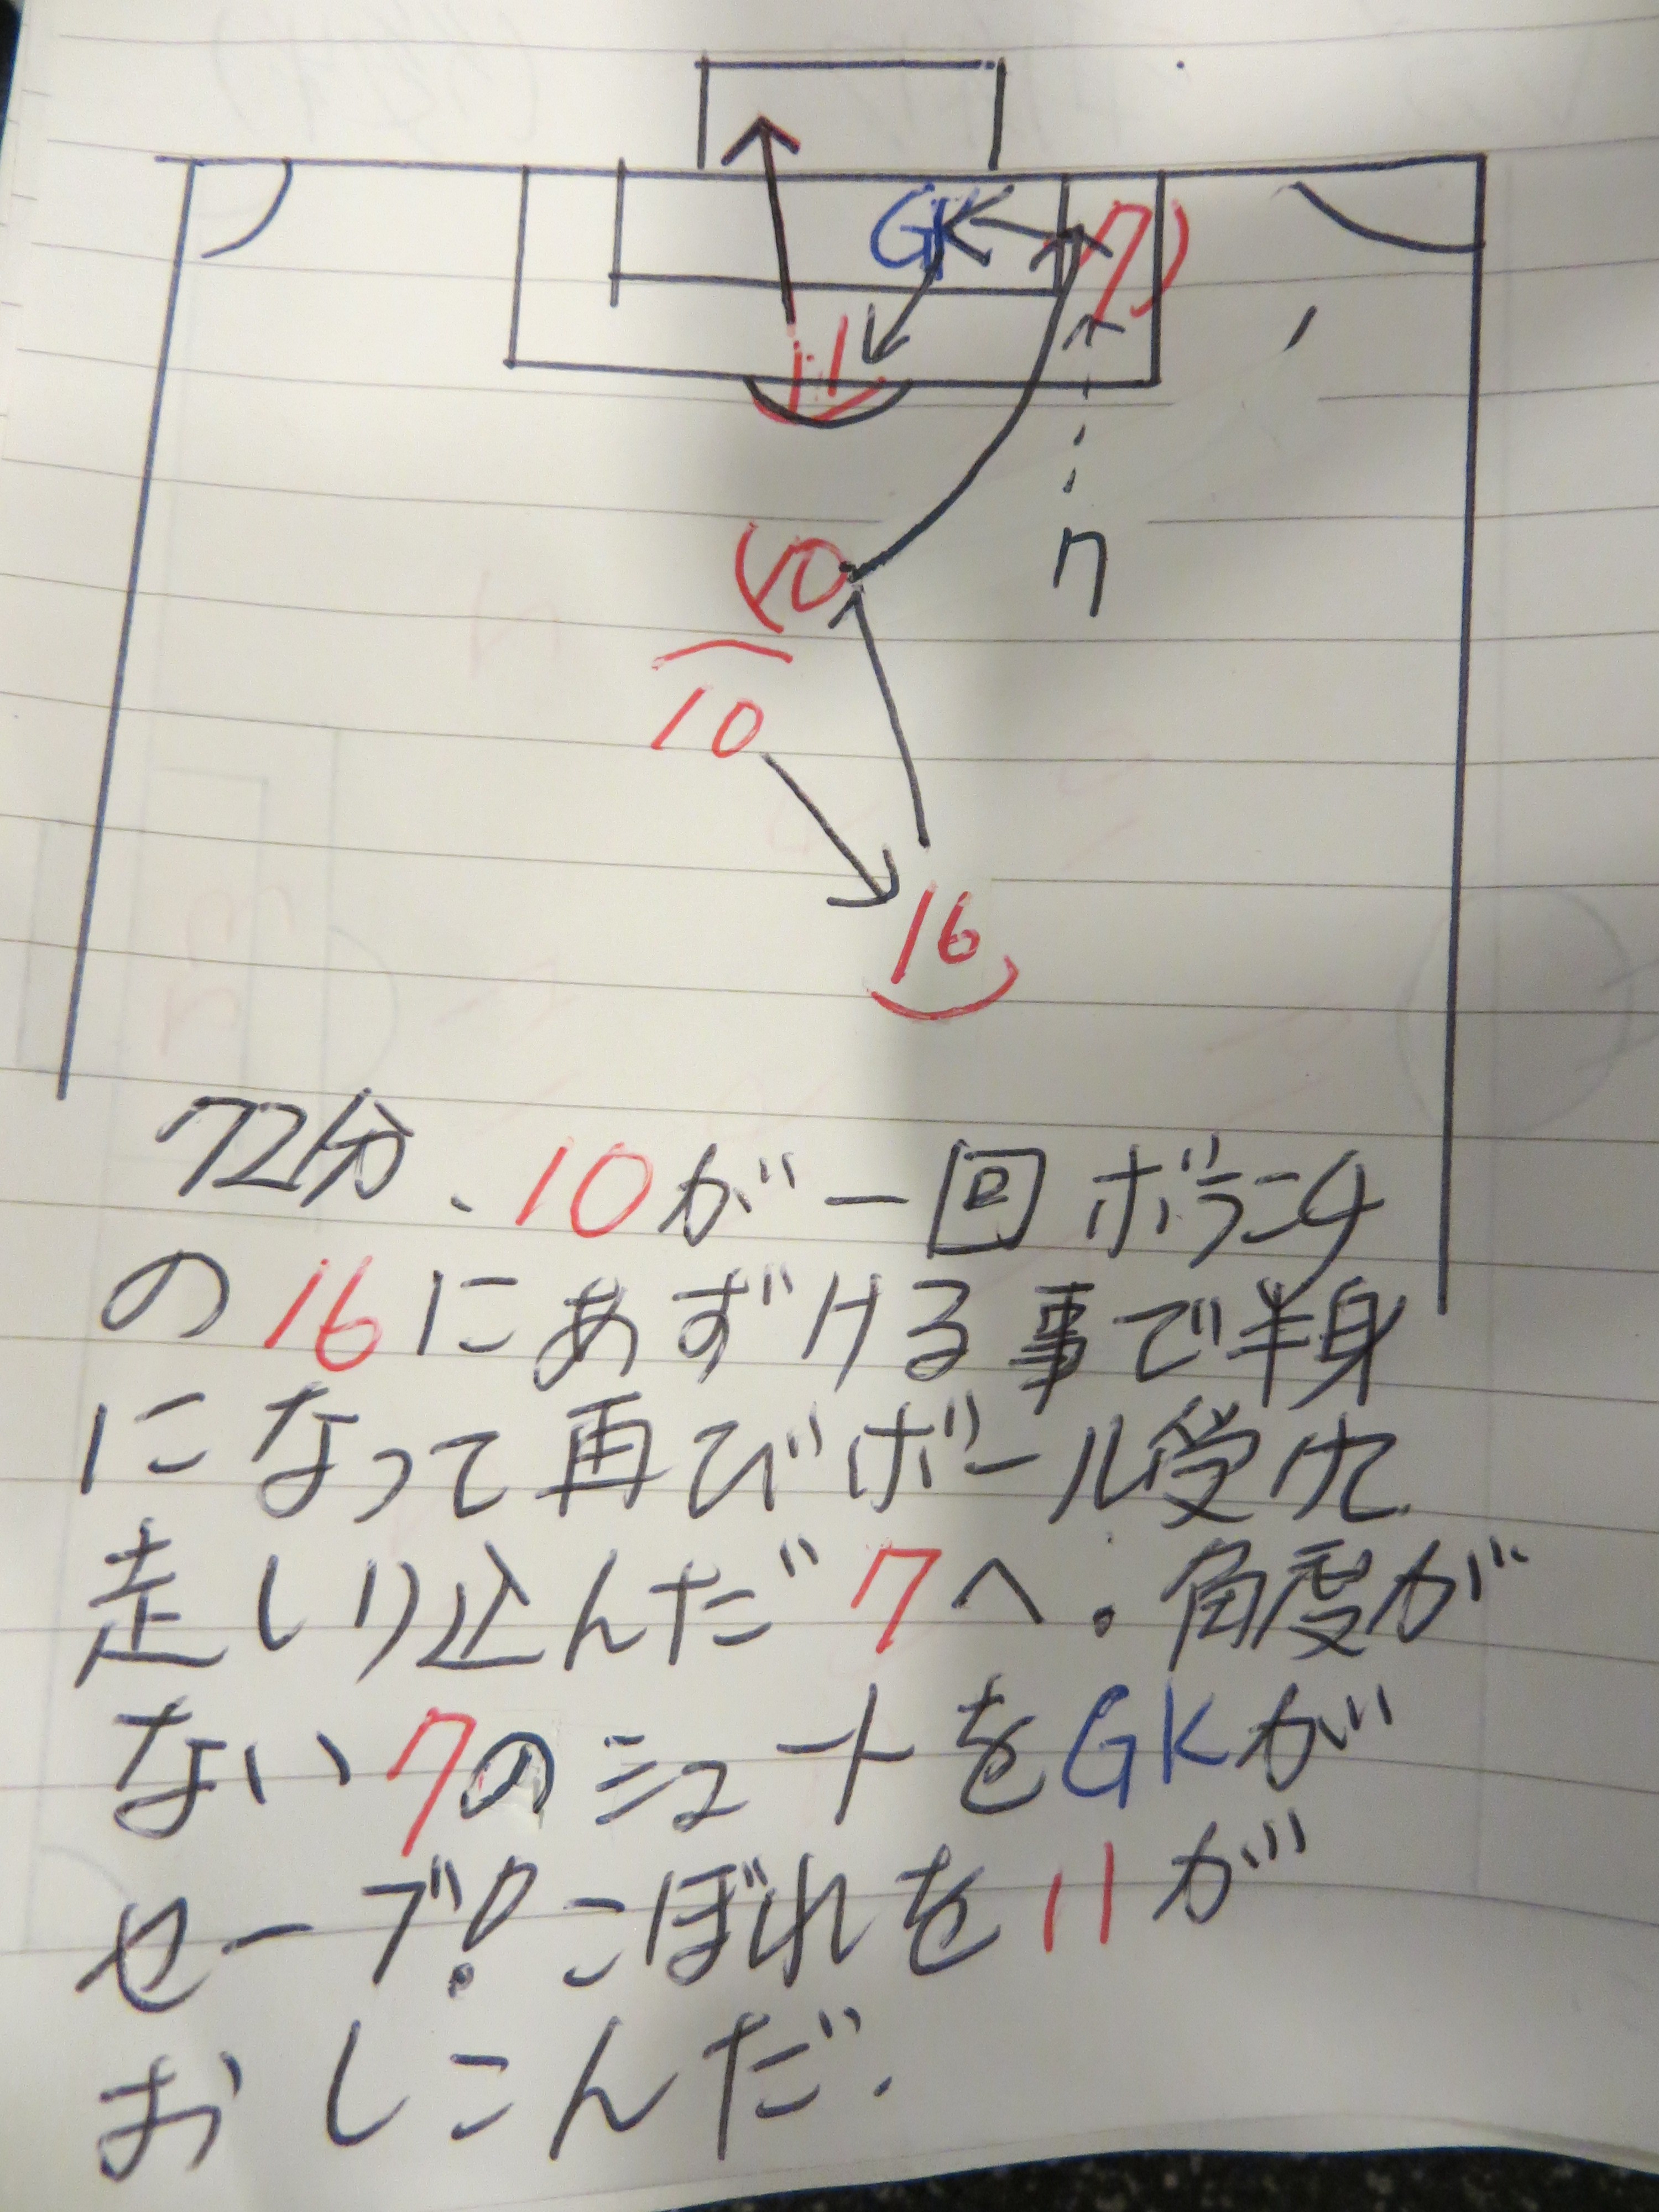 GK
7
11
10
7
10
16
72分、10が一回ボランチ
の16にあずける事で半身
になって再びボール受け
走しり込んだ7へ.角度が
ない7のシュートをGKが
セーブ!こぼれを11が
おしこんだ.